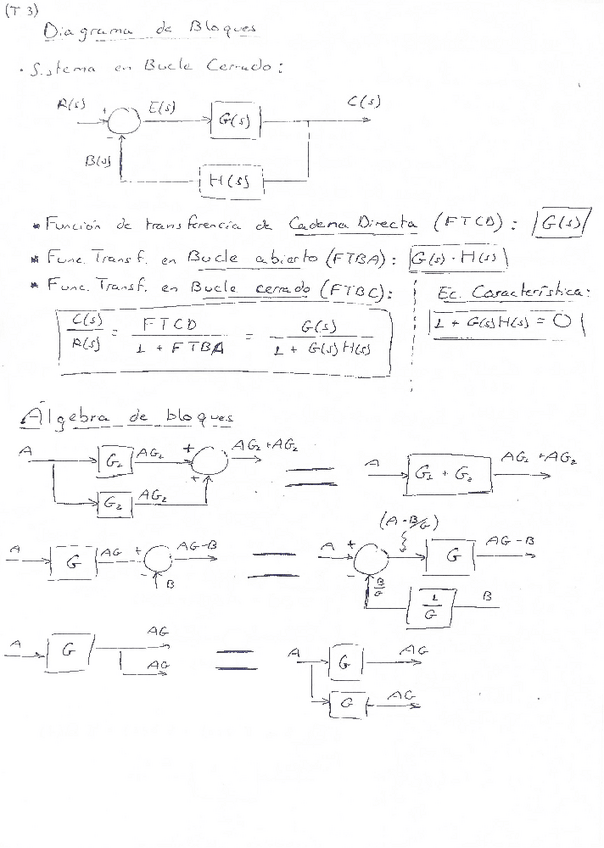 (T 3)
Diagrama de Bloques
• Sistema en Bucle Cerrado:
R(s) + E(s) G(s) C(s)
-
B(s) H(s)
* Función de transferencia de Cadena Directa (FTCD): G(s)
* Func. Transf. en Bucle abierto (FTBA): G(s) · H(s)
* Func. Transf. en Bucle cerrado (FTBC):
C(s)/R(s) = FTCD/1 + FTBA = G(s)/1 + G(s)H(s)
Ec. Característica:
1 + G(s)H(s) = 0
Álgebra de bloques
A G1 AG1 + AG1+AG2 = A G1 + G2 AG1+AG2
G2 AG2 +
A G AG + AG-B = A + (A-B/G) G AG-B
- B
- B/G 1/G B
A G AG = A G AG
AG G AG